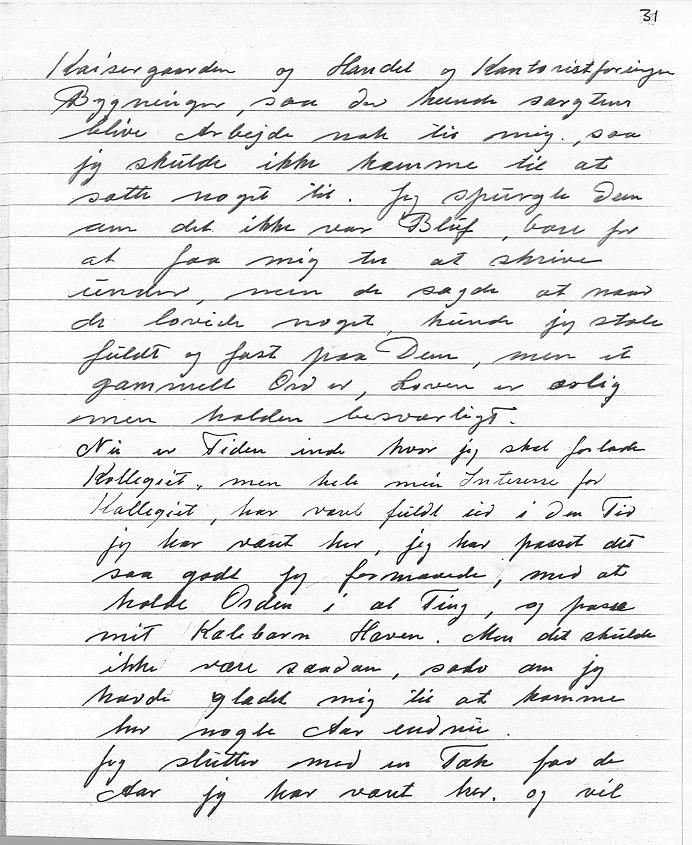 31
Kaisergaarden og Handel og Kontoristforeningen
Bygninger, saa der kunde sagtens
blive Arbejde nok til mig, saa
jeg skulde ikke komme til at
sætte noget til. Jeg spurgte Dem
om det ikke var Blüf, bare for
at faa mig til at skrive
under, men de sagde at naar
de lovede noget, kunde jeg stole
fuldt og fast paa Dem, men et
gammelt Ord er, Loven er ærlig
men holden besværligt.
Nu er Tiden inde hvor jeg skal forlade
Kollegiet, men hele min Interesse for
Kollegiet, har været fuldt ud i den Tid
jeg har været her, jeg har passet det
saa godt jeg formaaede, med at
holde Orden i al Ting, og passe
mit Kælebarn Haven. Men det skulde
ikke være saadan, selv om jeg
havde glædet mig til at komme
her nogle Aar endnu.
Jeg slutter med en Tak for de
Aar jeg har været her. og vil